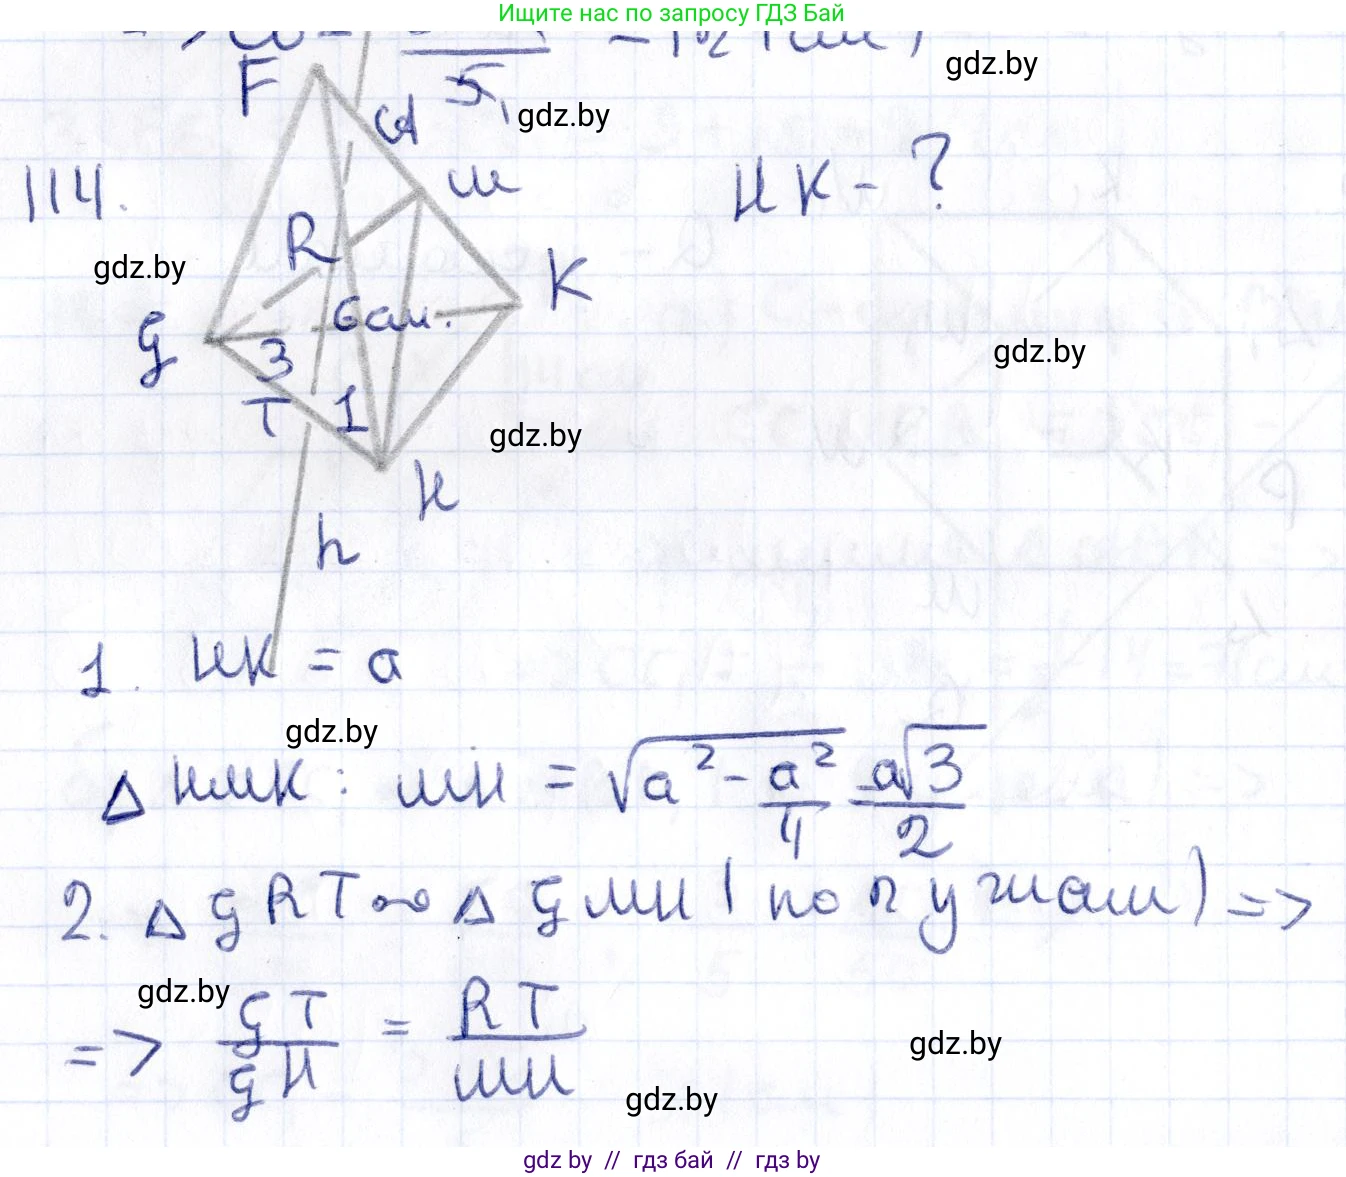 Ищите нас по запросу ГДЗ Бай
5
F
A
gdz.by
gdz.by
114.
M
HK - ?
R
gdz.by
K
6 см.
G
3
gdz.by
T 1
gdz.by
H
h
1. HK = a
gdz.by
Δ HMK: MH = √a² - a²/4 = a√3/2
2. Δ GRT ∾ Δ GMH (по 2 углам) =>
gdz.by
=> GT/GH = RT/MH
gdz.by
gdz.by
gdz by // гдз бай // гдз by